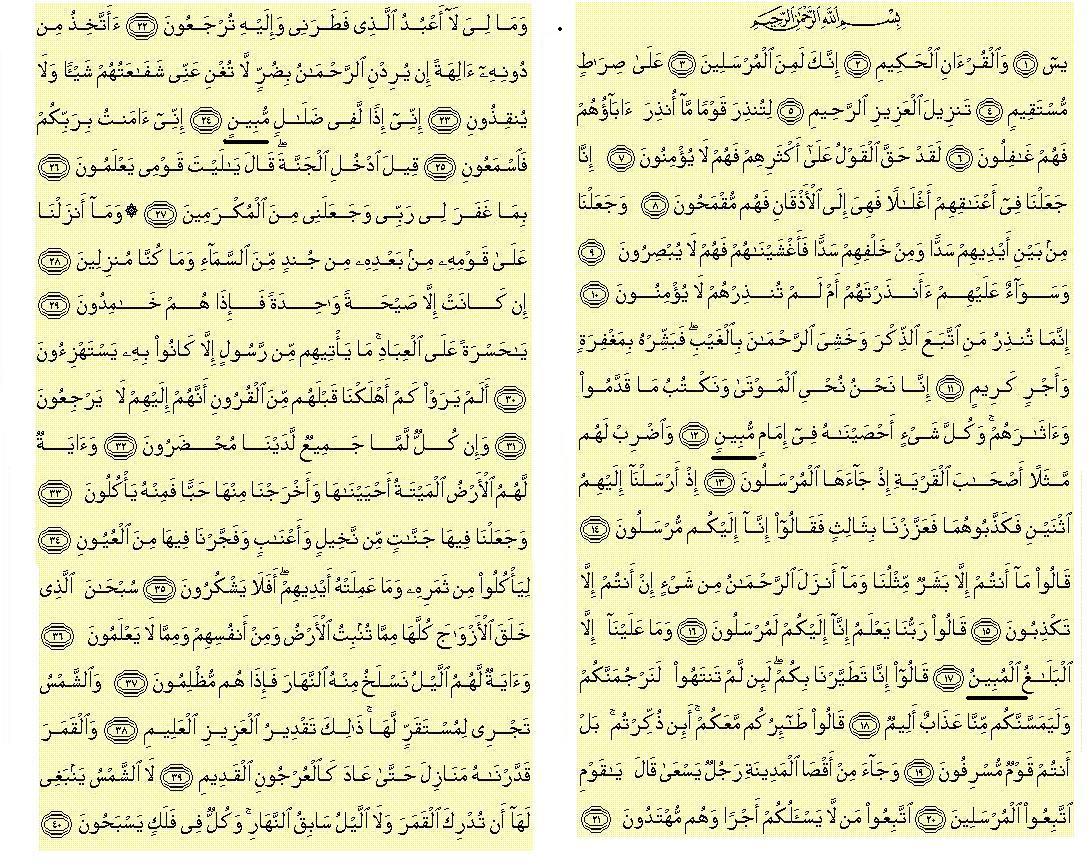 بِسْمِ ٱللَّهِ ٱلرَّحْمَٰنِ ٱلرَّحِيمِ
يسٓ ﴿١﴾ وَٱلْقُرْءَانِ ٱلْحَكِيمِ ﴿٢﴾ إِنَّكَ لَمِنَ ٱلْمُرْسَلِينَ ﴿٣﴾ عَلَىٰ صِرَٰطٍ
مُّسْتَقِيمٍ ﴿٤﴾ تَنزِيلَ ٱلْعَزِيزِ ٱلرَّحِيمِ ﴿٥﴾ لِتُنذِرَ قَوْمًا مَّآ أُنذِرَ ءَابَآؤُهُمْ
فَهُمْ غَـٰفِلُونَ ﴿٦﴾ لَقَدْ حَقَّ ٱلْقَوْلُ عَلَىٰٓ أَكْثَرِهِمْ فَهُمْ لَا يُؤْمِنُونَ ﴿٧﴾ إِنَّا
جَعَلْنَا فِىٓ أَعْنَـٰقِهِمْ أَغْلَـٰلًا فَهِىَ إِلَى ٱلْأَذْقَانِ فَهُم مُّقْمَحُونَ ﴿٨﴾ وَجَعَلْنَا
مِنۢ بَيْنِ أَيْدِيهِمْ سَدًّا وَمِنْ خَلْفِهِمْ سَدًّا فَأَغْشَيْنَـٰهُمْ فَهُمْ لَا يُبْصِرُونَ ﴿٩﴾
وَسَوَآءٌ عَلَيْهِمْ ءَأَنذَرْتَهُمْ أَمْ لَمْ تُنذِرْهُمْ لَا يُؤْمِنُونَ ﴿١٠﴾
إِنَّمَا تُنذِرُ مَنِ ٱتَّبَعَ ٱلذِّكْرَ وَخَشِىَ ٱلرَّحْمَـٰنَ بِٱلْغَيْبِ ۖ فَبَشِّرْهُ بِمَغْفِرَةٍ
وَأَجْرٍ كَرِيمٍ ﴿١١﴾ إِنَّا نَحْنُ نُحْىِ ٱلْمَوْتَىٰ وَنَكْتُبُ مَا قَدَّمُوا۟
وَءَاثَـٰرَهُمْ ۚ وَكُلَّ شَىْءٍ أَحْصَيْنَـٰهُ فِىٓ إِمَامٍ مُّبِينٍ ﴿١٢﴾ وَٱضْرِبْ لَهُم
مَّثَلًا أَصْحَـٰبَ ٱلْقَرْيَةِ إِذْ جَآءَهَا ٱلْمُرْسَلُونَ ﴿١٣﴾ إِذْ أَرْسَلْنَآ إِلَيْهِمُ
ٱثْنَيْنِ فَكَذَّبُوهُمَا فَعَزَّزْنَا بِثَالِثٍ فَقَالُوٓا۟ إِنَّآ إِلَيْكُم مُّرْسَلُونَ ﴿١٤﴾
قَالُوا۟ مَآ أَنتُمْ إِلَّا بَشَرٌ مِّثْلُنَا وَمَآ أَنزَلَ ٱلرَّحْمَـٰنُ مِن شَىْءٍ إِنْ أَنتُمْ إِلَّا
تَكْذِبُونَ ﴿١٥﴾ قَالُوا۟ رَبُّنَا يَعْلَمُ إِنَّآ إِلَيْكُمْ لَمُرْسَلُونَ ﴿١٦﴾ وَمَا عَلَيْنَآ إِلَّا
ٱلْبَلَـٰغُ ٱلْمُبِينُ ﴿١٧﴾ قَالُوٓا۟ إِنَّا تَطَيَّرْنَا بِكُمْ ۖ لَئِن لَّمْ تَنتَهُوا۟ لَنَرْجُمَنَّكُمْ
وَلَيَمَسَّنَّكُم مِّنَّا عَذَابٌ أَلِيمٌ ﴿١٨﴾ قَالُوا۟ طَـٰٓئِرُكُم مَّعَكُمْ ۚ أَئِن ذُكِّرْتُم ۚ بَلْ
أَنتُمْ قَوْمٌ مُّسْرِفُونَ ﴿١٩﴾ وَجَآءَ مِنْ أَقْصَا ٱلْمَدِينَةِ رَجُلٌ يَسْعَىٰ قَالَ يَـٰقَوْمِ
ٱتَّبِعُوا۟ ٱلْمُرْسَلِينَ ﴿٢٠﴾ ٱتَّبِعُوا۟ مَن لَّا يَسْـَٔلُكُمْ أَجْرًا وَهُم مُّهْتَدُونَ ﴿٢١﴾
وَمَا لِىَ لَآ أَعْبُدُ ٱلَّذِى فَطَرَنِى وَإِلَيْهِ تُرْجَعُونَ ﴿٢٢﴾ ءَأَتَّخِذُ مِن
دُونِهِۦٓ ءَالِهَةً إِن يُرِدْنِ ٱلرَّحْمَـٰنُ بِضُرٍّ لَّا تُغْنِ عَنِّى شَفَـٰعَتُهُمْ شَيْـًٔا وَلَا
يُنقِذُونِ ﴿٢٣﴾ إِنِّىٓ إِذًا لَّفِى ضَلَـٰلٍ مُّبِينٍ ﴿٢٤﴾ إِنِّىٓ ءَامَنتُ بِرَبِّكُمْ
فَٱسْمَعُونِ ﴿٢٥﴾ قِيلَ ٱدْخُلِ ٱلْجَنَّةَ ۖ قَالَ يَـٰلَيْتَ قَوْمِى يَعْلَمُونَ ﴿٢٦﴾
بِمَا غَفَرَ لِى رَبِّى وَجَعَلَنِى مِنَ ٱلْمُكْرَمِينَ ﴿٢٧﴾ ۞ وَمَآ أَنزَلْنَا
عَلَىٰ قَوْمِهِۦ مِنۢ بَعْدِهِۦ مِن جُندٍ مِّنَ ٱلسَّمَآءِ وَمَا كُنَّا مُنزِلِينَ ﴿٢٨﴾
إِن كَانَتْ إِلَّا صَيْحَةً وَٰحِدَةً فَإِذَا هُمْ خَـٰمِدُونَ ﴿٢٩﴾
يَـٰحَسْرَةً عَلَى ٱلْعِبَادِ ۚ مَا يَأْتِيهِم مِّن رَّسُولٍ إِلَّا كَانُوا۟ بِهِۦ يَسْتَهْزِءُونَ
﴿٣٠﴾ أَلَمْ يَرَوْا۟ كَمْ أَهْلَكْنَا قَبْلَهُم مِّنَ ٱلْقُرُونِ أَنَّهُمْ إِلَيْهِمْ لَا يَرْجِعُونَ
﴿٣١﴾ وَإِن كُلٌّ لَّمَّا جَمِيعٌ لَّدَيْنَا مُحْضَرُونَ ﴿٣٢﴾ وَءَايَةٌ
لَّهُمُ ٱلْأَرْضُ ٱلْمَيْتَةُ أَحْيَيْنَـٰهَا وَأَخْرَجْنَا مِنْهَا حَبًّا فَمِنْهُ يَأْكُلُونَ ﴿٣٣﴾
وَجَعَلْنَا فِيهَا جَنَّـٰتٍ مِّن نَّخِيلٍ وَأَعْنَـٰبٍ وَفَجَّرْنَا فِيهَا مِنَ ٱلْعُيُونِ ﴿٣٤﴾
لِيَأْكُلُوا۟ مِن ثَمَرِهِۦ وَمَا عَمِلَتْهُ أَيْدِيهِمْ ۖ أَفَلَا يَشْكُرُونَ ﴿٣٥﴾ سُبْحَـٰنَ ٱلَّذِى
خَلَقَ ٱلْأَزْوَٰجَ كُلَّهَا مِمَّا تُنۢبِتُ ٱلْأَرْضُ وَمِنْ أَنفُسِهِمْ وَمِمَّا لَا يَعْلَمُونَ ﴿٣٦﴾
وَءَايَةٌ لَّهُمُ ٱلَّيْلُ نَسْلَخُ مِنْهُ ٱلنَّهَارَ فَإِذَا هُم مُّظْلِمُونَ ﴿٣٧﴾ وَٱلشَّمْسُ
تَجْرِى لِمُسْتَقَرٍّ لَّهَا ۚ ذَٰلِكَ تَقْدِيرُ ٱلْعَزِيزِ ٱلْعَلِيمِ ﴿٣٨﴾ وَٱلْقَمَرَ
قَدَّرْنَـٰهُ مَنَازِلَ حَتَّىٰ عَادَ كَٱلْعُرْجُونِ ٱلْقَدِيمِ ﴿٣٩﴾ لَا ٱلشَّمْسُ يَنۢبَغِى
لَهَآ أَن تُدْرِكَ ٱلْقَمَرَ وَلَا ٱلَّيْلُ سَابِقُ ٱلنَّهَارِ ۚ وَكُلٌّ فِى فَلَكٍ يَسْبَحُونَ ﴿٤٠﴾